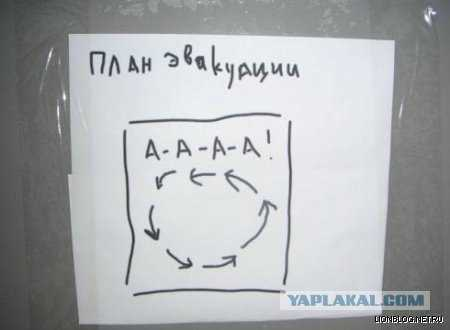 План эвакуации
А-А-А-А!
YAPLAKAL.COM
LIONBLOG.NET.RU